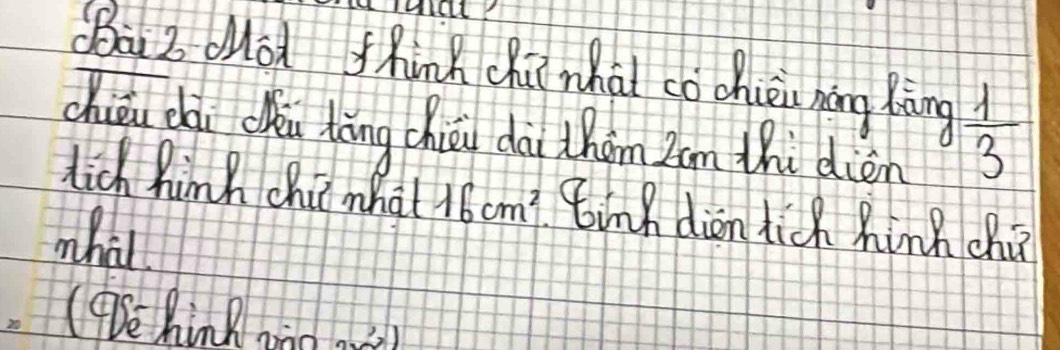 Bài 2 Một hình chữ nhật có chiều rộng bằng 1/3
chiều dài nếu tăng chiều dài thêm 2cm thì diện
tích hình chữ nhật 16 cm². Tính diện tích hình chữ
nhật.
(Vẽ hình vào vở)